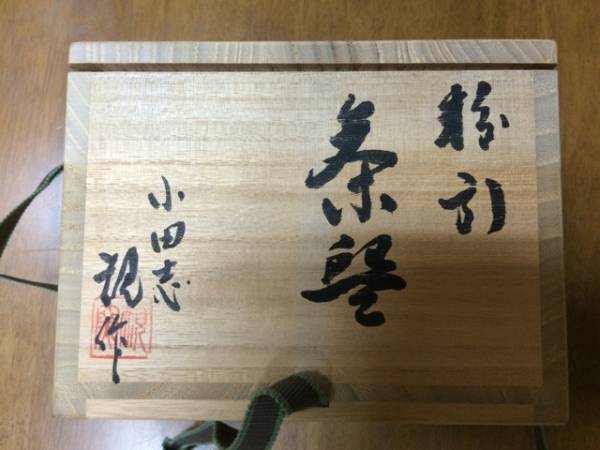 粉引
茶盌
小田志
規作